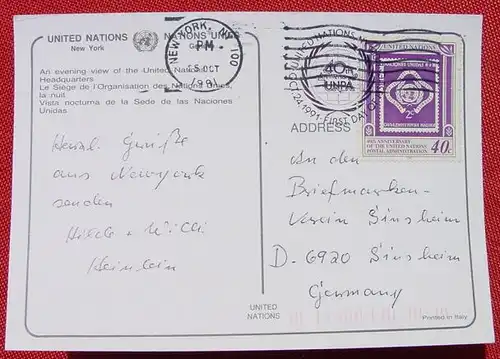 UNITED NATIONS
New York
NATIONS UNIES
An evening view of the United Nations
Headquarters
Le Siège de l'Organisation des Nations Unies,
la nuit
Vista nocturna de la Sede de las Naciones
Unidas
NEW YORK, NY 100
PM
OCT
1991
UNITED NATIONS
40th
ANNIVERSARY
UNPA
24-1991-FIRST DAY
UNITED NATIONS
40th ANNIVERSARY
OF THE UNITED NATIONS
POSTAL ADMINISTRATION
40c
ADDRESS
Herzl. Grüße
aus Newyork
senden
Heinlein
An den
Briefmarken-
Verein Sinsheim
D-6920 Sinsheim
Germany
UNITED
NATIONS
Printed in Italy